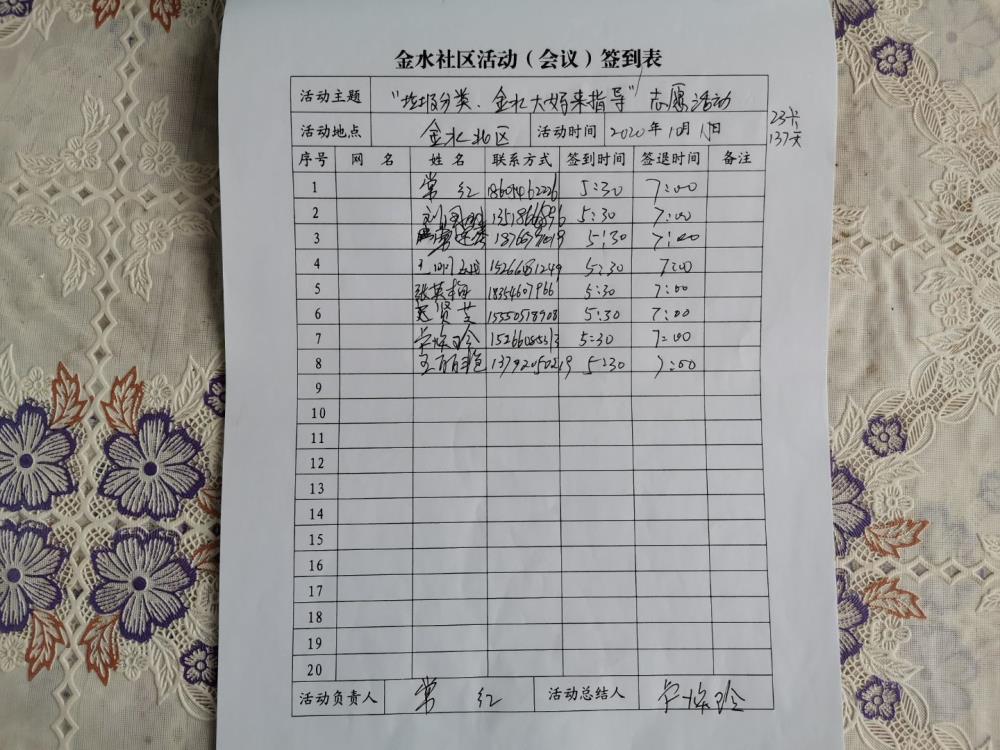 金水社区活动（会议）签到表
活动主题 "垃圾分类、金水大妈来指导" 志愿活动
活动地点 金水北区 活动时间 2020年10月1日
137天
序号 网名 姓名 联系方式 签到时间 签退时间 备注
1 常红 5:30 7:00
2 5:30 7:00
3 5:30 7:00
4 15266681249 5:30 7:00
5 张英梅 18354607966 5:30 7:00
6 贤芝 15550518908 5:30 7:00
7 5:30 7:00
8 王丽艳 13792050219 5:30 7:00
9
10
11
12
13
14
15
16
17
18
19
20
活动负责人 常红 活动总结人